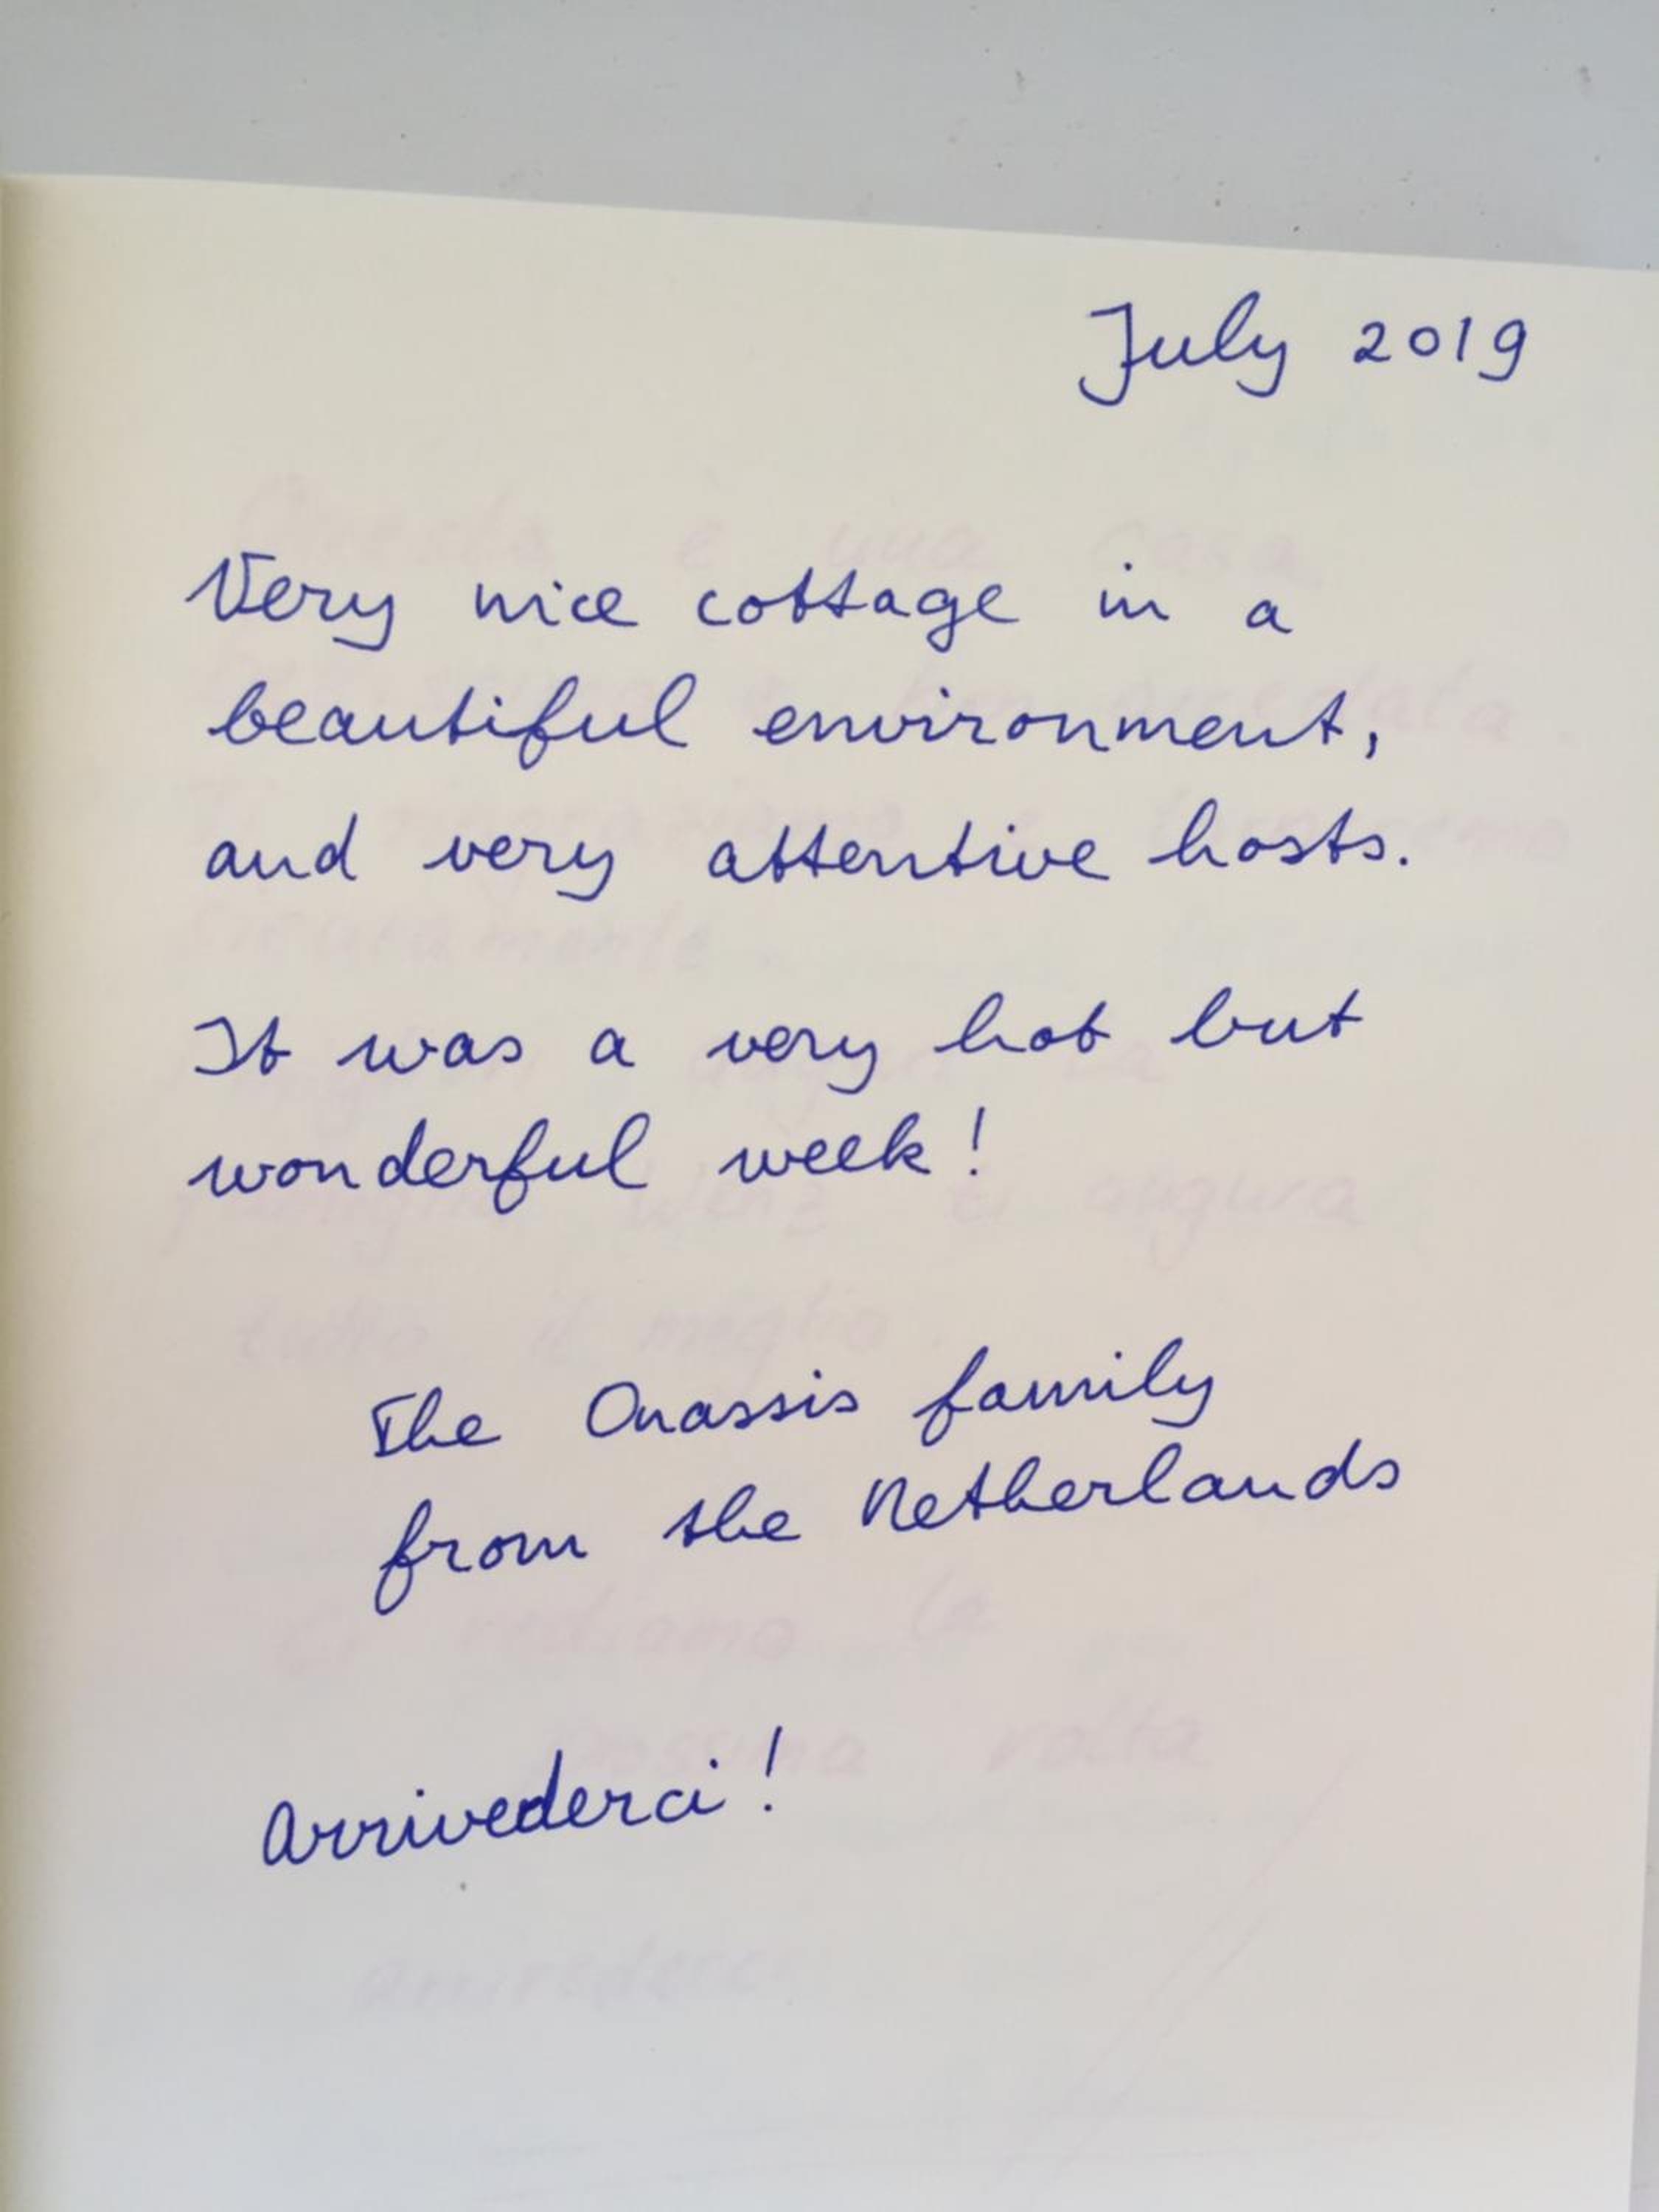 July 2019
Very nice cottage in a
beautiful environment,
and very attentive hosts.
It was a very hot but
wonderful week!
The Onassis family
from the Netherlands
Arrivederci!